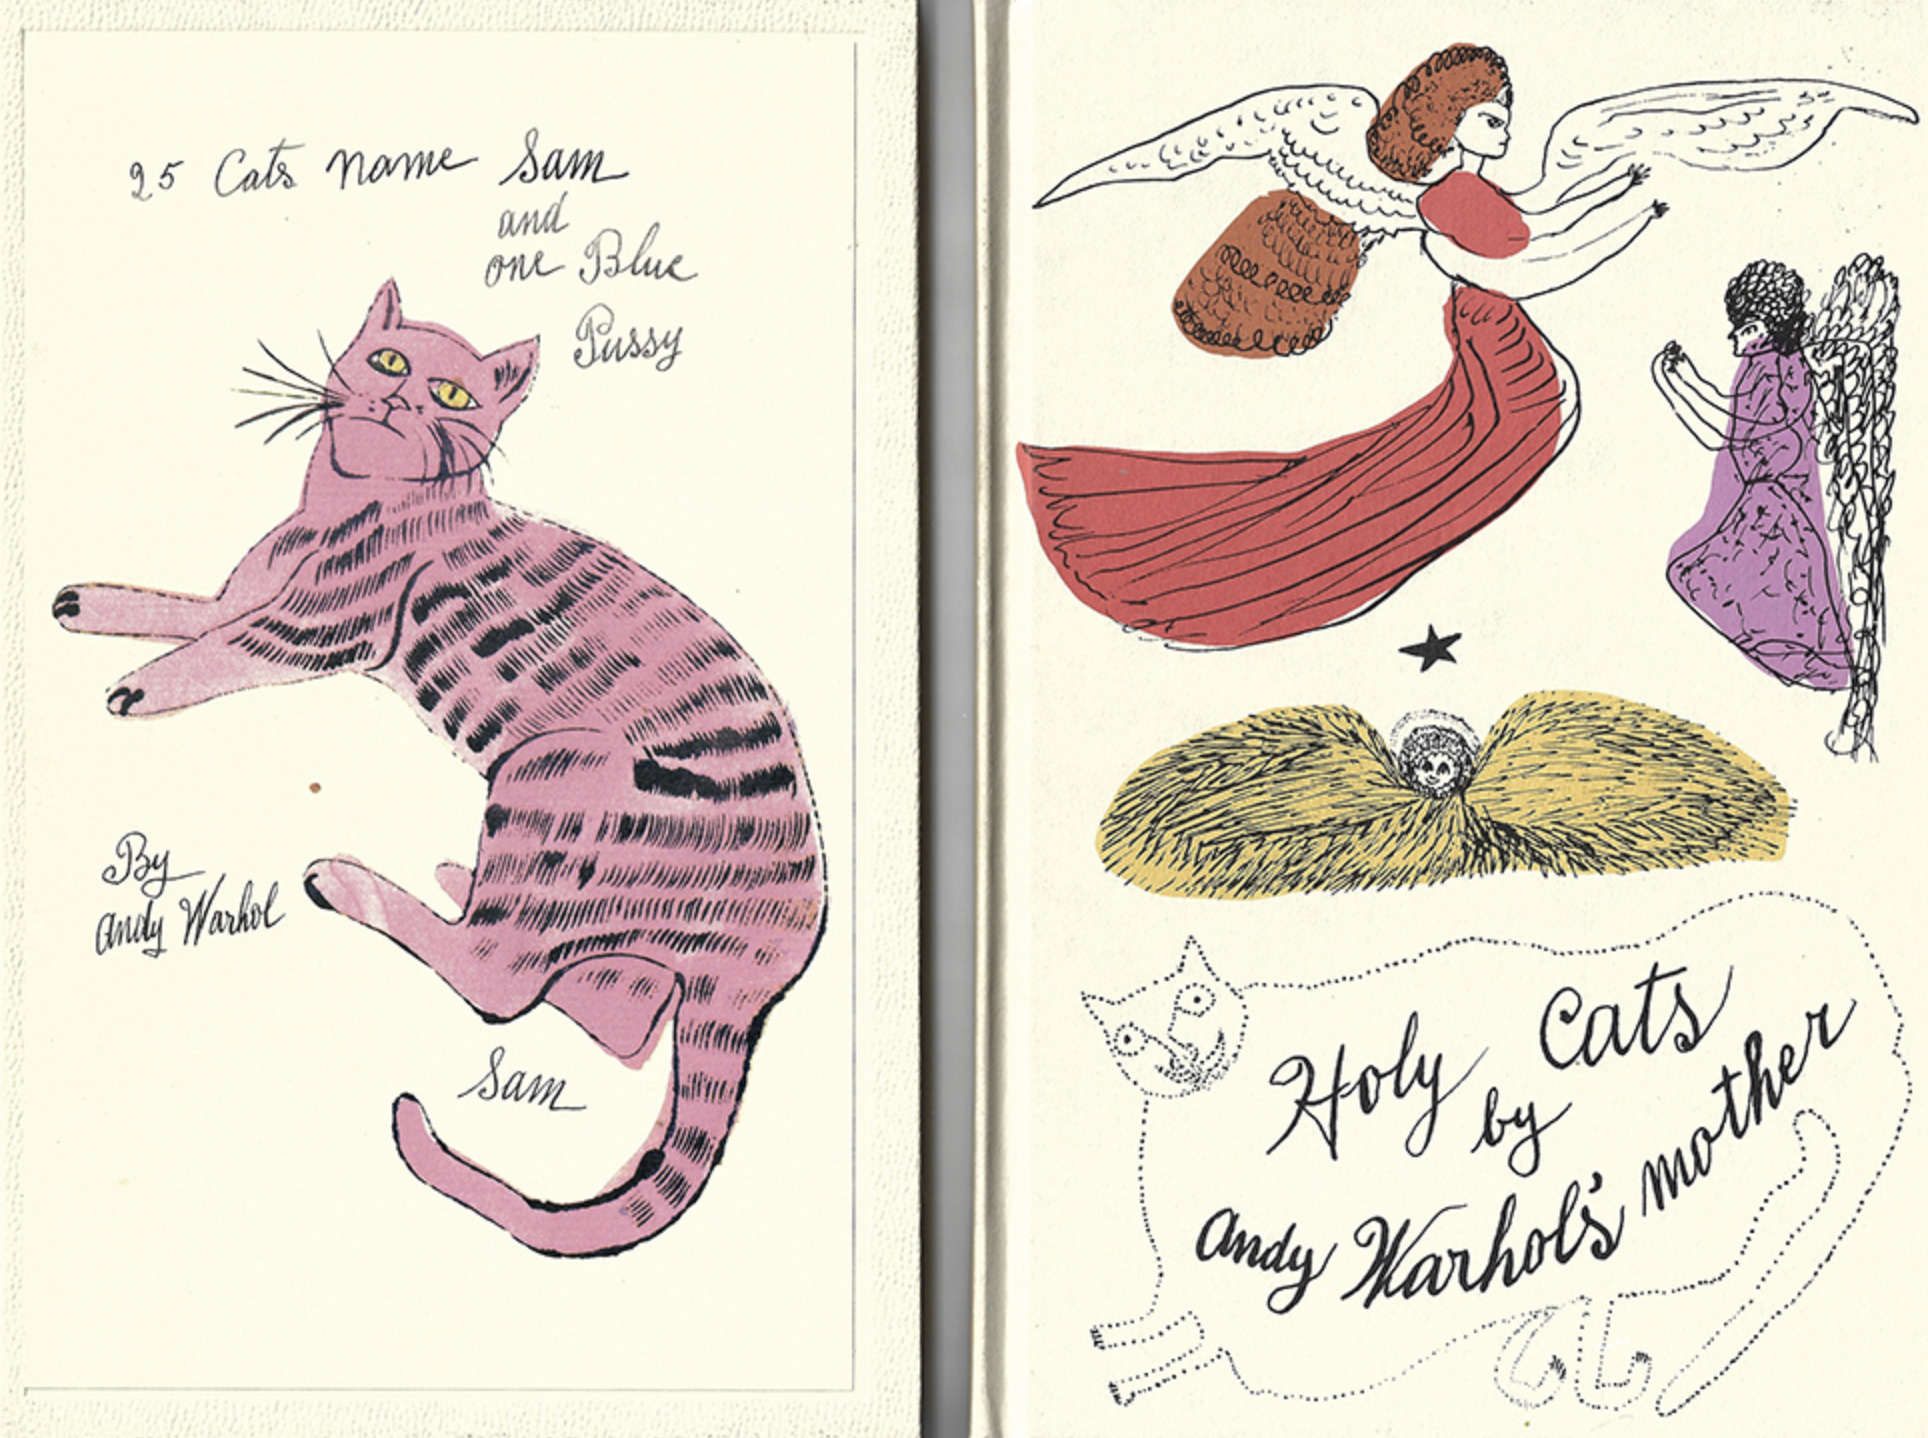 25 Cats name Sam
and
one Blue
Pussy
By
Andy Warhol
Sam
Holy Cats
by
Andy Warhol's mother